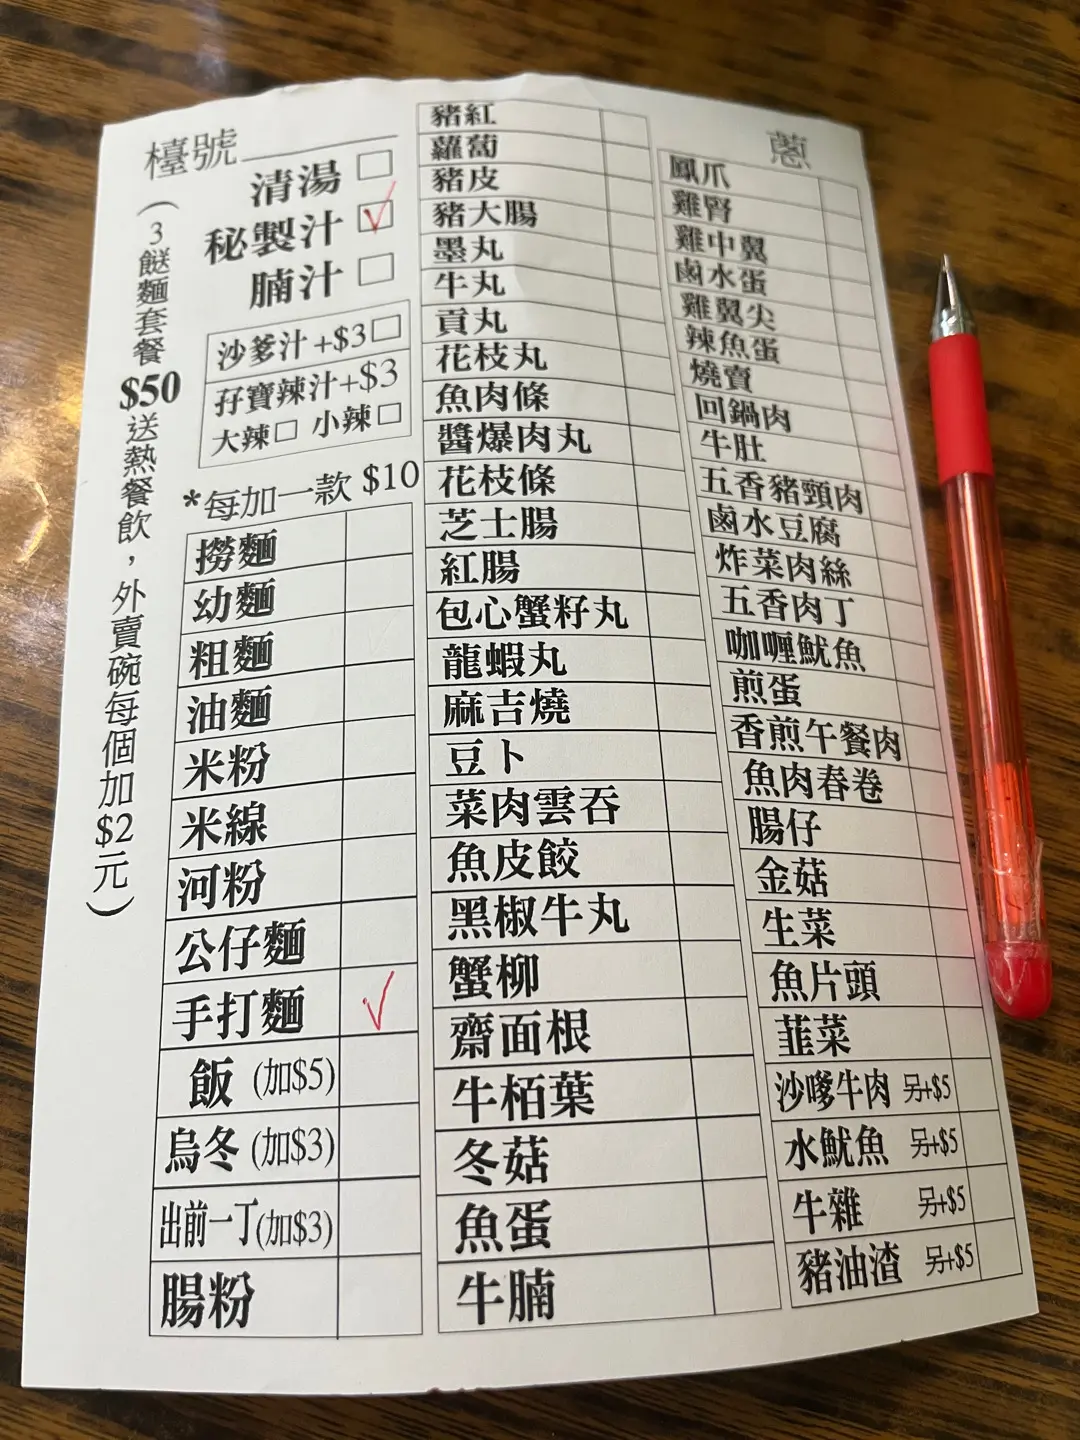 檯號
清湯
秘製汁
腩汁
沙爹汁+$3
孖寶辣汁+$3
大辣 小辣
(3餸麵套餐$50送熱餐飲,外賣碗每個加$2元)
*每加一款 $10
撈麵
幼麵
粗麵
油麵
米粉
米線
河粉
公仔麵
手打麵
飯 (加$5)
烏冬 (加$3)
出前一丁(加$3)
腸粉
豬紅
蘿蔔
豬皮
豬大腸
墨丸
牛丸
貢丸
花枝丸
魚肉條
醬爆肉丸
花枝條
芝士腸
紅腸
包心蟹籽丸
龍蝦丸
麻吉燒
豆卜
菜肉雲吞
魚皮餃
黑椒牛丸
蟹柳
齋面根
牛栢葉
冬菇
魚蛋
牛腩
蔥
鳳爪
雞腎
雞中翼
鹵水蛋
雞翼尖
辣魚蛋
燒賣
回鍋肉
牛肚
五香豬頸肉
鹵水豆腐
炸菜肉絲
五香肉丁
咖喱魷魚
煎蛋
香煎午餐肉
魚肉春卷
腸仔
金菇
生菜
魚片頭
韮菜
沙嗲牛肉 另+$5
水魷魚 另+$5
牛雜 另+$5
豬油渣 另+$5